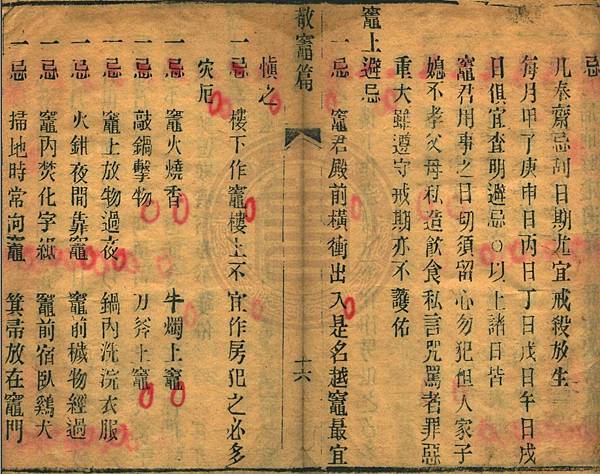 忌
凡奉齋忌刻日期尤宜戒殺放生
每月甲丁庚申日丙日丁日戊日午日戌
日俱宜查明避忌○以上諸日皆
竈君用事之日切須留心勿犯但人家子
媳不孝父母私造飲食私言咒罵者罪惡
重大雖遵守戒期亦不護佑
竈上避忌
一忌 竈君殿前橫衝出入是名越竈最宜
敬竈篇 十六
慎之
一忌 樓下作竈樓上不宜作房犯之必多
灾厄
一忌 竈火燒香 牛爛上竈
一忌 敲鍋擊物 刀斧上竈
一忌 竈上放物過夜 鍋內洗浣衣服
一忌 火鉗夜間靠竈 竈前穢物經過
一忌 竈內焚化字紙 竈前宿臥鷄犬
一忌 掃地時常向竈 箕帚放在竈門